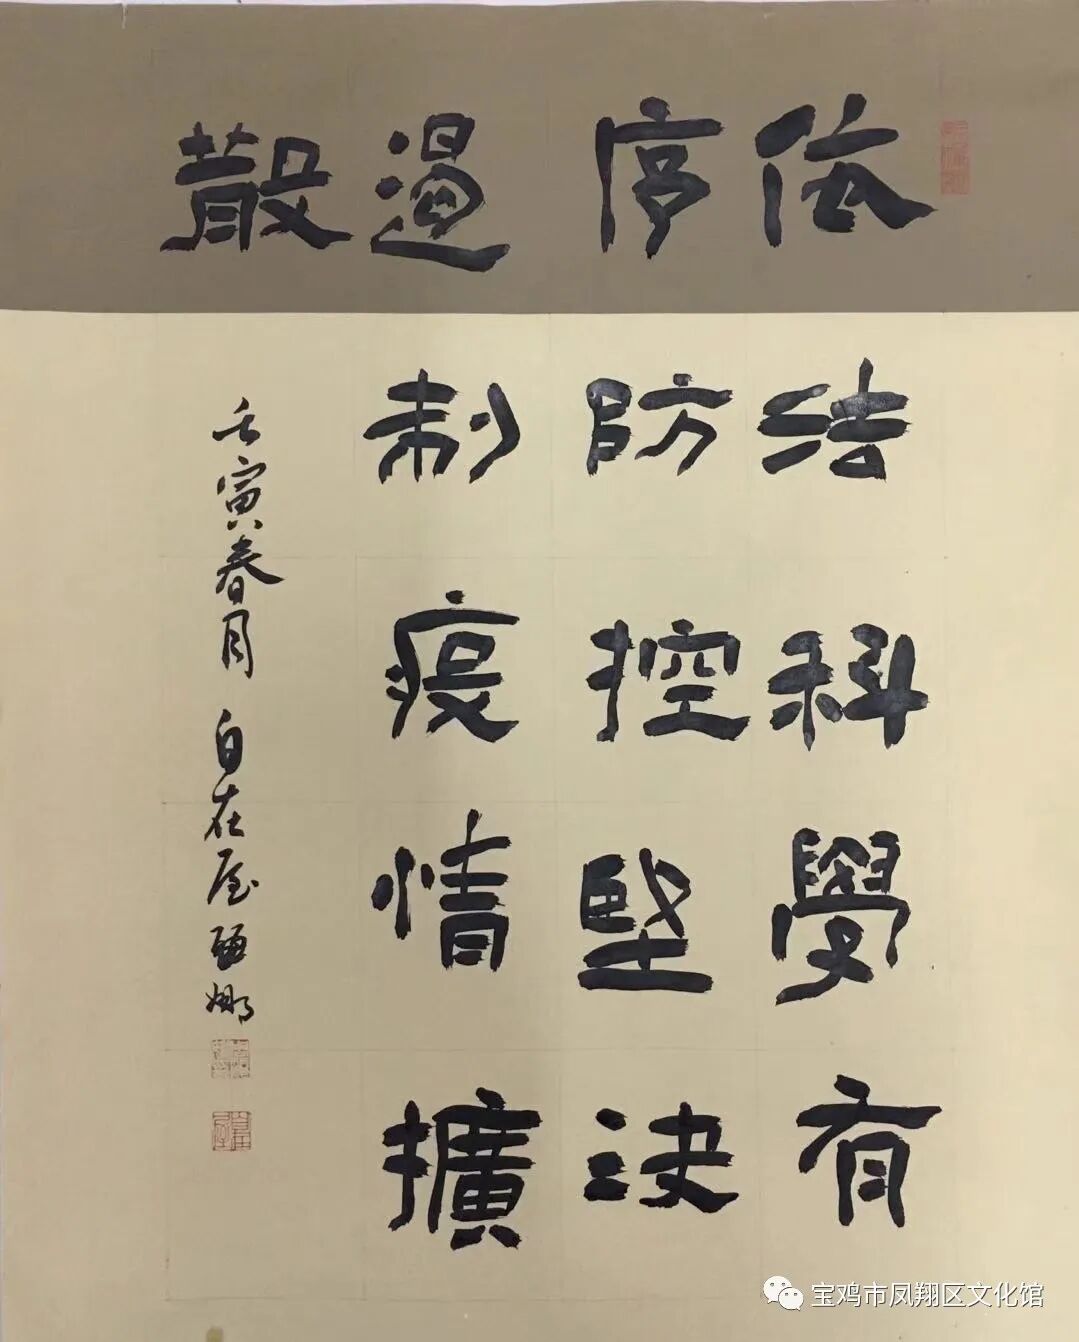 依法科學有
序防控堅決
遏制疫情擴
散
壬寅春月 自在屋 娜
宝鸡市凤翔区文化馆